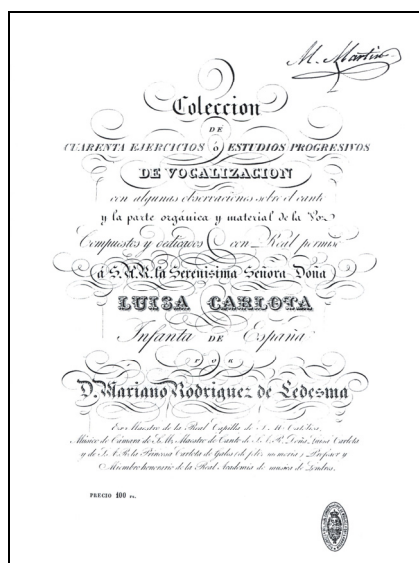 M. Martin
Coleccion
DE
CUARENTA EJERCICIOS ó ESTUDIOS PROGRESIVOS
DE VOCALIZACION
con algunas observaciones sobre el canto
y la parte orgánica y material de la Voz
Compuestos y dedicados con Real permiso
á S.A.R. la Serenisima Señora Doña
LUISA CARLOTA
Infanta DE España
POR
D. Mariano Rodriguez de Ledesma
Maestro de la Real Capilla de S. M. Católica,
Músico de Cámara de S. M. Maestro de Canto de S. A. R. Doña Luisa Carlota
y de S. A. R. la Princesa Carlota de Gales (de feliz memoria) Profesor y
Miembro honorario de la Real Academia de musica de Londres.
PRECIO 100 rs.